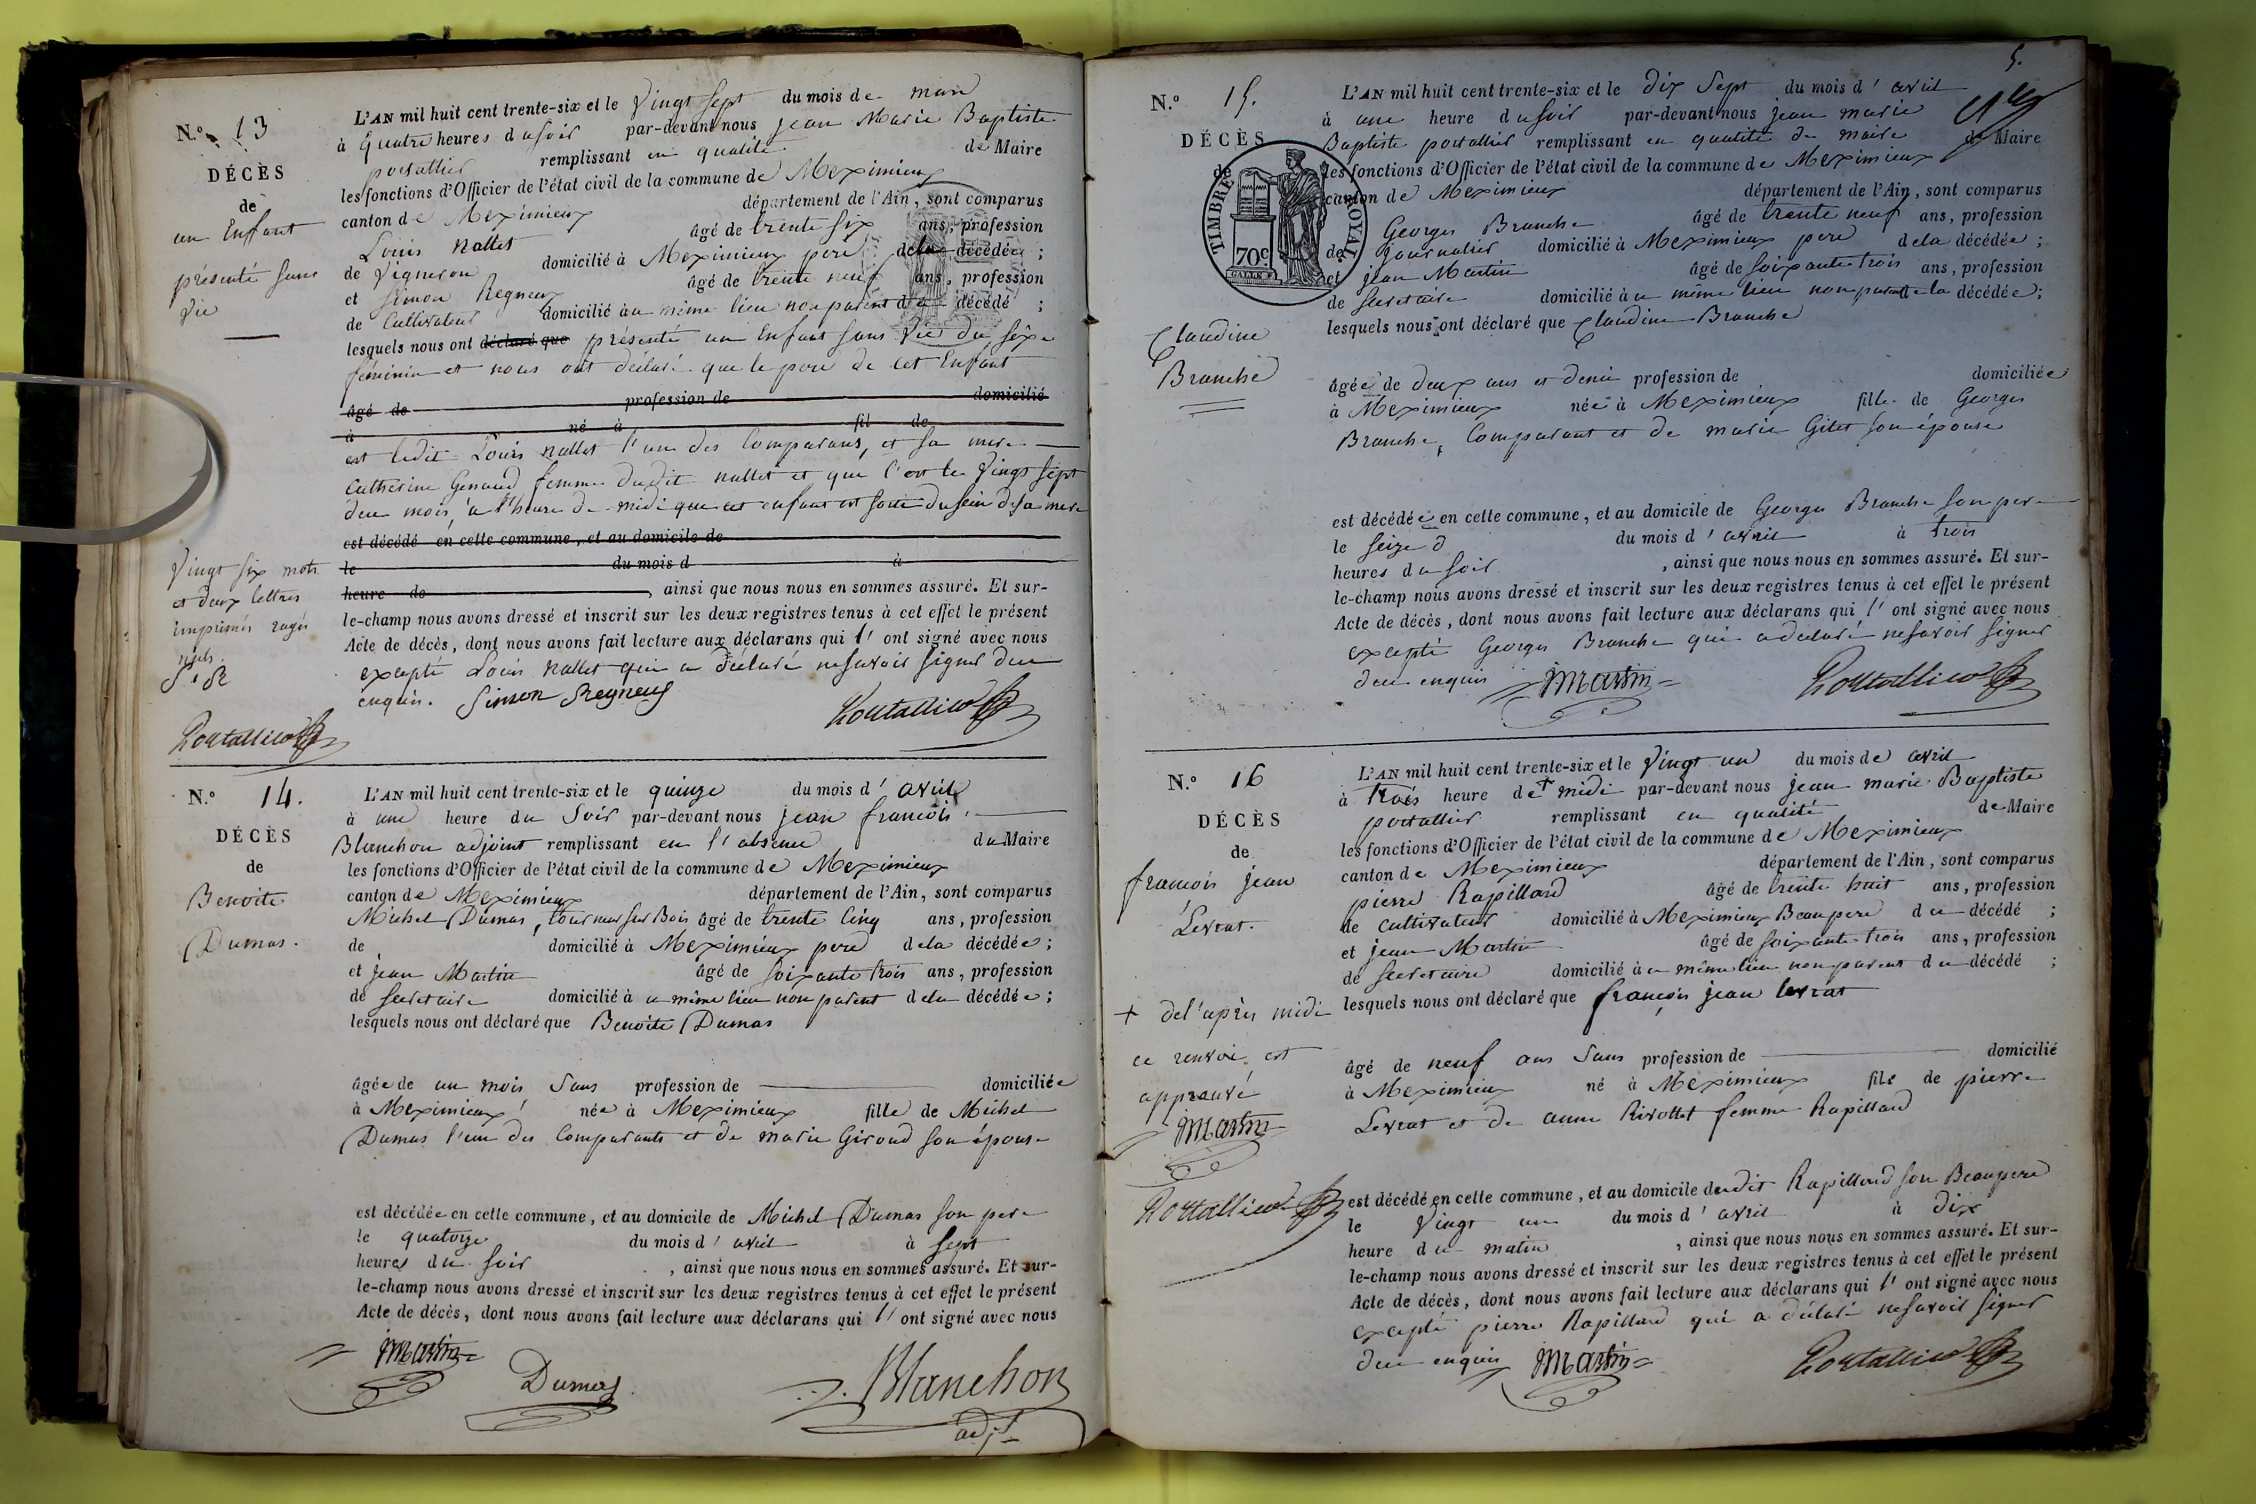 N.º 13
DÉCÈS
de
un Enfant
présenté sans
vie
L'AN mil huit cent trente-six et le Vingt Sept du mois de mars
à Quatre heures du soir par-devant nous Jean Marie Baptiste
portallier remplissant en qualité de Maire
les fonctions d'Officier de l'état civil de la commune de Meximieux
canton de Meximieux département de l'Ain, sont comparus
Louis Nallet âgé de trente six ans, profession
de Vigneron domicilié à Meximieux pere de la décédée ;
et Simon Regneux âgé de trente neuf ans, profession
de Cultivateur domicilié au même lieu non parent d u décédé ;
lesquels nous ont déclaré que présenté un Enfant sans Vie du sèxe
féminin et nous ont déclaré que le pere de cet Enfant
âgé de profession de domicilié
à né à fil de
est ledit Louis Nallet l'un des Comparans, et sa mere
Catherine Genaud femme dudit nallet et que c'est le Vingt Sept
deu mois, a l'heure de midi que cet enfant est sortie du sein de sa mere
est décédé en cette commune, et au domicile de
le du mois d à
heure de , ainsi que nous nous en sommes assuré. Et sur-
le-champ nous avons dressé et inscrit sur les deux registres tenus à cet effet le présent
Acte de décès, dont nous avons fait lecture aux déclarans qui l' ont signé avec nous
excepté Louis Nallet qui a déclaré ne savoir signer deu
enquis. Simon Regneux Portallier
Vingt six mots
et deux lettres
imprimés rayés
nuls.
Portallier
N.º 14.
DÉCÈS
de
Benoite
Dumas.
L'AN mil huit cent trente-six et le quinze du mois d' avril
à une heure du Soir par-devant nous jean francois
Blanchon adjoint remplissant en l'absence du Maire
les fonctions d'Officier de l'état civil de la commune de Meximieux
canton de Meximieux département de l'Ain, sont comparus
Michel Dumas, tourneur sur Bois âgé de trente Cinq ans, profession
de domicilié à Meximieux pere de la décédée ;
et jean Martin âgé de soixante trois ans, profession
de Secretaire domicilié à u même lieu non parent de la décédée ;
lesquels nous ont déclaré que Benoite Dumas
âgée de un mois Sans profession de domiciliée
à Meximieux née à Meximieux fille de Michel
Dumas l'un des Comparants et de marie Giroud son épouse
est décédée en cette commune, et au domicile de Michel Dumas son pere
le quatorze du mois d' avril à sept
heures du soir , ainsi que nous nous en sommes assuré. Et sur-
le-champ nous avons dressé et inscrit sur les deux registres tenus à cet effet le présent
Acte de décès, dont nous avons fait lecture aux déclarans qui l' ont signé avec nous
jmartin
Dumas
Blanchon
adj.t
5.
N.º 15.
DÉCÈS
de
TIMBRE ROYAL
70 c
Claudine
Branche
L'AN mil huit cent trente-six et le Dix Sept du mois d' avril
à une heure du soir par-devant nous jean marie
Baptiste portallier remplissant en qualité de maire de Maire
les fonctions d'Officier de l'état civil de la commune de Meximieux
canton de Meximieux département de l'Ain, sont comparus
Georges Branche âgé de trente neuf ans, profession
de Journalier domicilié à Meximieux pere de la décédée ;
et jean Martin âgé de soixante trois ans, profession
de Secretaire domicilié à u même lieu non parent de la décédée ;
lesquels nous ont déclaré que Claudine Branche
âgée de deux ans et demi profession de domiciliée
à Meximieux née à Meximieux fille de Georges
Branche, Comparant et de marie Gilet son épouse
est décédée en cette commune, et au domicile de Georges Branche son pere
le seize d du mois d' avril à trois
heures du soir , ainsi que nous nous en sommes assuré. Et sur-
le-champ nous avons dressé et inscrit sur les deux registres tenus à cet effet le présent
Acte de décès, dont nous avons fait lecture aux déclarans qui l' ont signé avec nous
excepté Georges Branche qui a déclaré ne savoir signer
deu enquis jmartin Portallier
N.º 16
DÉCÈS
de
françois jean
Levrat.
+ de l'après midi
ce renvoi est
approuvé
jmartin
Portallier
L'AN mil huit cent trente-six et le Vingt un du mois de avril
à trois heure de + midi par-devant nous jean marie Baptiste
portallier remplissant en qualité de Maire
les fonctions d'Officier de l'état civil de la commune de Meximieux
canton de Meximieux département de l'Ain, sont comparus
pierre Rapillard âgé de trente huit ans, profession
de cultivateur domicilié à Meximieux Beaupere d u décédé ;
et jean Martin âgé de soixante trois ans, profession
de Secretaire domicilié à u même lieu non parent d u décédé ;
lesquels nous ont déclaré que françois jean levrat
âgé de neuf ans Sans profession de domicilié
à Meximieux né à Meximieux fils de pierre
Levrat et de anne Rivollet femme Rapillard
est décédé en cette commune, et au domicile dudit Rapillard son Beaupere
le Vingt un du mois d' avril à dix
heure du matin , ainsi que nous nous en sommes assuré. Et sur-
le-champ nous avons dressé et inscrit sur les deux registres tenus à cet effet le présent
Acte de décès, dont nous avons fait lecture aux déclarans qui l' ont signé avec nous
excepté pierre Rapillard qui a déclaré ne savoir signer
deu enquis jmartin Portallier